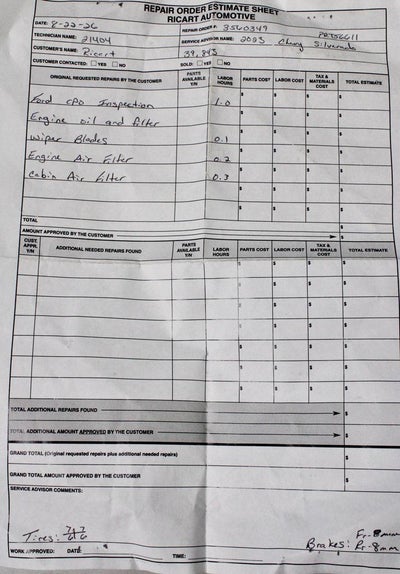 REPAIR ORDER ESTIMATE SHEET
RICART AUTOMOTIVE
DATE: 8-22-26 REPAIR ORDER #: 8560349
TECHNICIAN NAME: 21404 SERVICE ADVISOR NAME: 2023 Chevy Silverado
CUSTOMER'S NAME: Ricart 39,843
CUSTOMER CONTACTED: YES NO SOLD: YES NO
ORIGINAL REQUESTED REPAIRS BY THE CUSTOMER PARTS AVAILABLE Y/N LABOR HOURS PARTS COST LABOR COST TAX & MATERIALS COST TOTAL ESTIMATE
Ford CPO Inspection 1.0 $ $ $ $
Engine oil and filter $ $ $ $
Wiper Blades 0.1 $ $ $ $
Engine Air Filter 0.2 $ $ $ $
Cabin Air Filter 0.3 $ $ $ $
$ $ $ $
TOTAL $
AMOUNT APPROVED BY THE CUSTOMER $
CUST. APPR. Y/N ADDITIONAL NEEDED REPAIRS FOUND PARTS AVAILABLE Y/N LABOR HOURS PARTS COST LABOR COST TAX & MATERIALS COST TOTAL ESTIMATE
$ $ $ $
$ $ $ $
$ $ $ $
$ $ $ $
$ $ $ $
$ $ $ $
TOTAL ADDITIONAL REPAIRS FOUND $
TOTAL ADDITIONAL AMOUNT APPROVED BY THE CUSTOMER $
GRAND TOTAL (Original requested repairs plus additional needed repairs) $
GRAND TOTAL AMOUNT APPROVED BY THE CUSTOMER $
SERVICE ADVISOR COMMENTS:
Tires: 7 7 Fr-8mm
6 6 Brakes: Rr-8mm
WORK APPROVED: DATE: TIME: